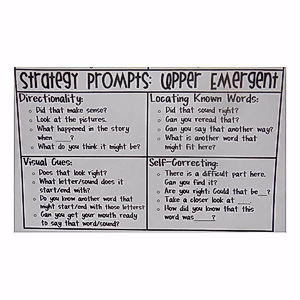 Strategy Prompts: Upper Emergent
Directionality:
Did that make sense?
Look at the pictures.
What happened in the story
when ___?
What do you think it might be?
Locating Known Words:
Did that sound right?
Can you reread that?
Can you say that another way?
What is another word that
might fit here?
Visual Cues:
Does that look right?
What letter/sound does it
start/end with?
Do you know another word that
might start/end with those letters?
Can you get your mouth ready
to say that word/sound?
Self-Correcting:
There is a difficult part here.
Can you find it?
Are you right? Could that be___?
Take a closer look at ____.
How did you know that this
word was____?